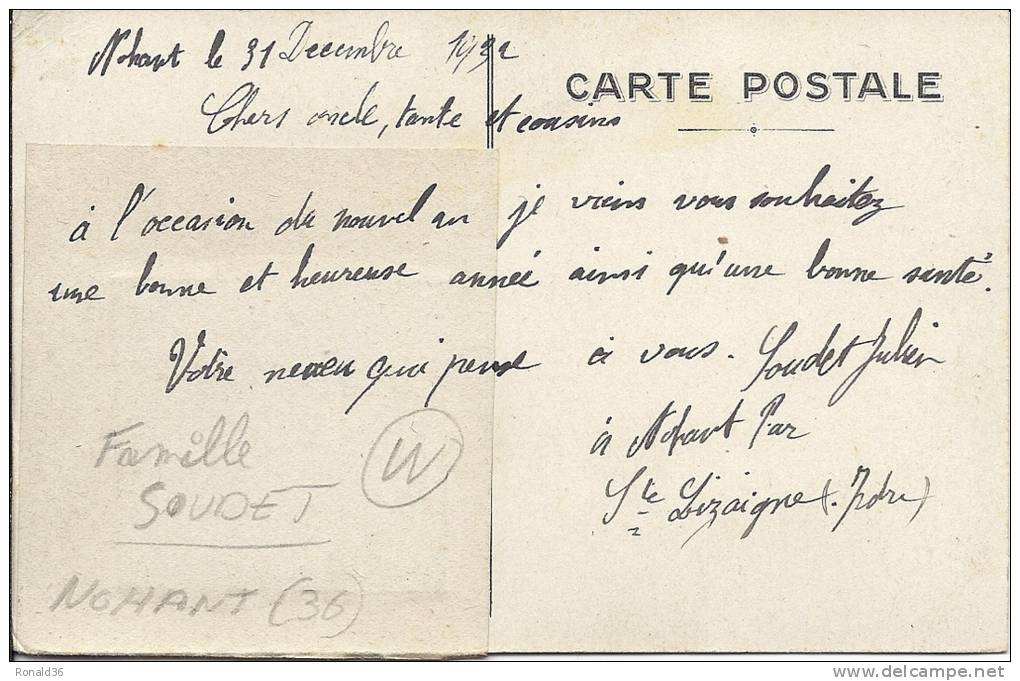 Nohant le 31 Decembre 1932
CARTE POSTALE
Chers oncle, tante et cousins
à l'occasion du nouvel an je viens vous souhaitez
une bonne et heureuse année ainsi qu'une bonne santé.
Votre neveu qui pense à vous. Soudet Julien
à Nohant Par
Ste Lizaigne (Indre)
Famille
SOUDET
W
NOHANT (36)
Ronald36
www.delcampe.net